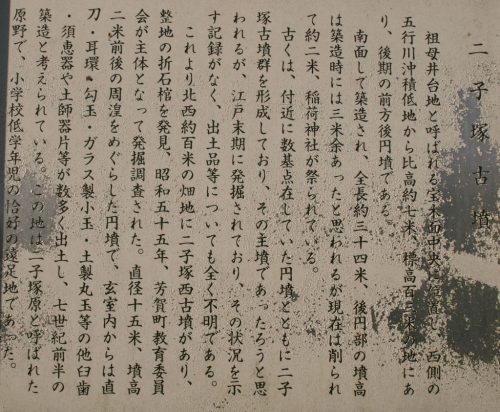 二子塚古墳
祖母井台地と呼ばれる宝木面中央に位置し、西側の
五行川沖積低地から比高約七米、標高百二米の地にあ
り、後期の前方後円墳である。
南面して築造され、全長約三十四米、後円部の墳高
は築造時には三米余あったと思われるが現在は削られ
て約二米、稲荷神社が祭られている。
古くは、付近に数基点在していた円墳とともに二子
塚古墳群を形成しており、その主墳であったろうと思
われるが、江戸末期に発掘されており、その状況を示
す記録がなく、出土品等についても全く不明である。
これより北西約百米の畑地に二子塚西古墳があり、
整地の折石棺を発見、昭和五十五年、芳賀町教育委員
会が主体となって発掘調査された。直径十五米、墳高
二米前後の周湟をめぐらした円墳で、玄室内からは直
刀・耳環・勾玉・ガラス製小玉・土製丸玉等の他臼歯
・須恵器や土師器片等が数多く出土し、七世紀前半の
築造と考えられている。この地は二子塚原と呼ばれた
原野で、小学校低学年児の恰好の遠足地であった。